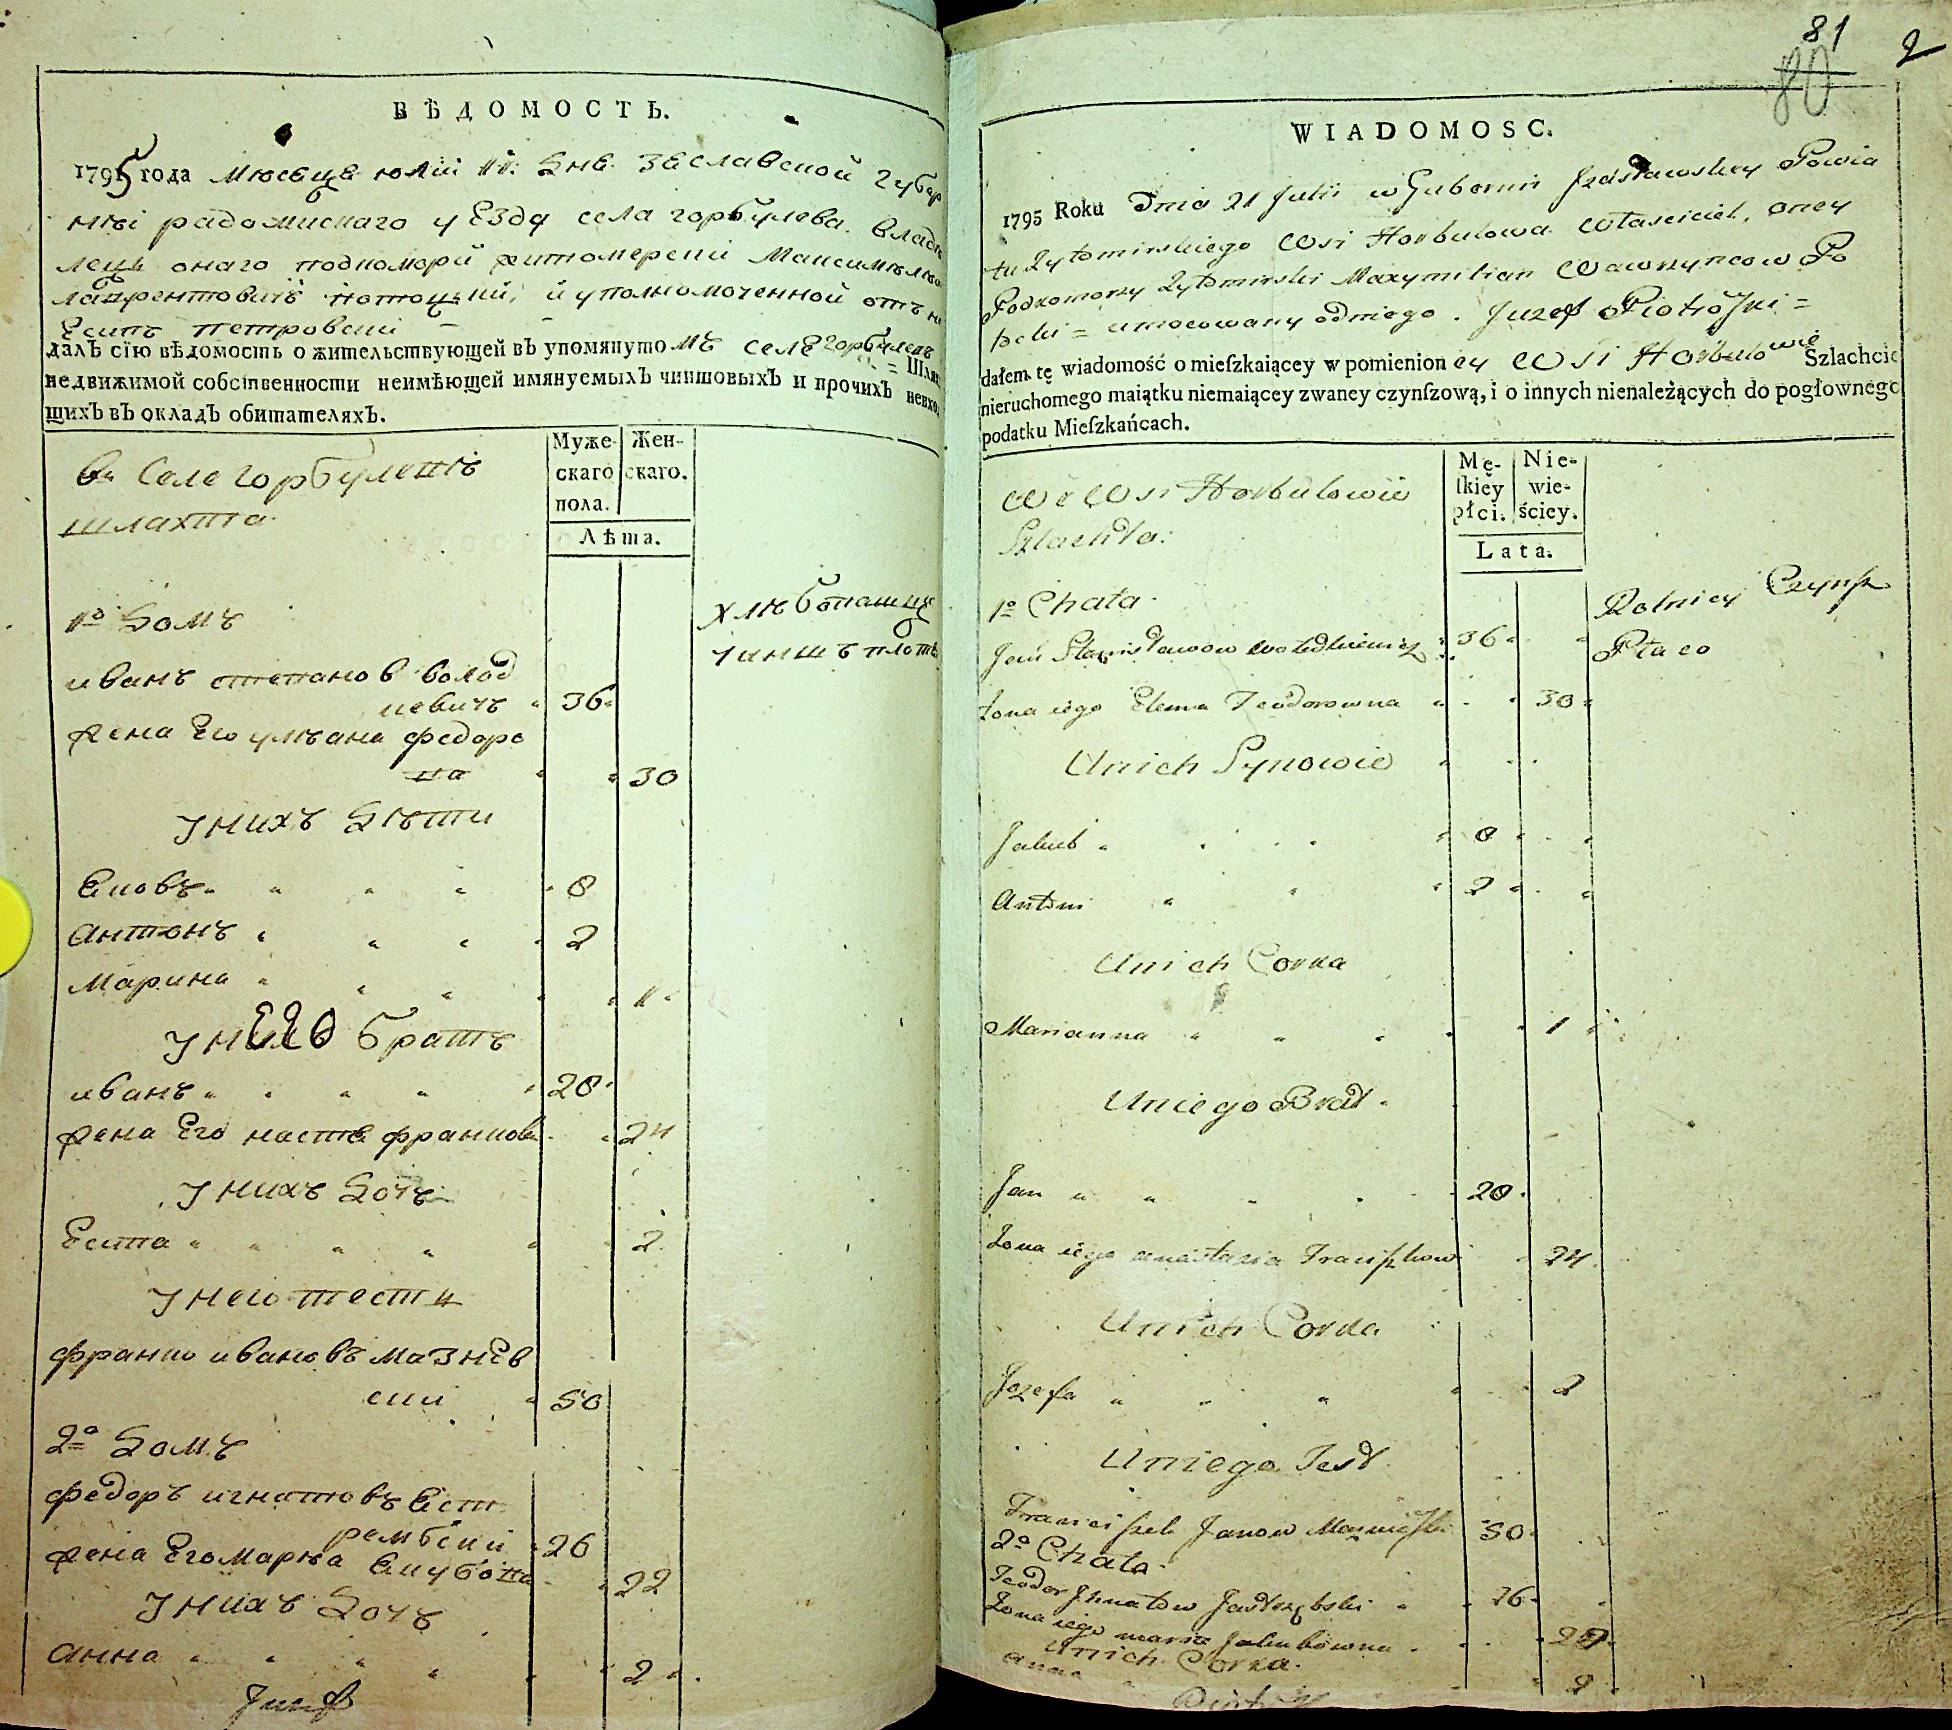 ВѢДОМОСТЬ.
1795 года Месеца юлій 11: дне Заславской Губер
ніи радомискаго уезду села горбулева. Владе
лецъ онаго подкоморій житомерскій Максимъ
лаврентовичъ потоцкий, и уполномоченной отъ н
Есипъ петровскі
далъ сїю вѣдомость о жительствующей въ упомянутомъ селе Горбулевъ = Шля
недвижимой собственности неимѣющей имянуемыхъ чиншовыхъ и прочихъ невхо
щихъ въ окладъ обитателяхъ.
Муже-скаго пола. Жен-скаго.
Лѣта.
въ Селе горбулеві
шляхта.
1º домъ
хлебопашцы
чиншъ плоте
иванъ степановъ волод
кевичъ 36
жена Его улиана федоро
на 30
у нихъ дѣти
Яковъ 8
антонъ 2
марина 1
у него братъ
иванъ 28
жена Его настя францов 24
у нихъ дочъ
Есипа 2
у него тести
франко ивановъ мазнев
скии 50
2º домъ
федоръ игнатовъ Яст
рембскій 26
жена Его марья Якубовна 22
у нихъ дочъ
анна 2
Juzef
81
80
2
WIADOMOSC.
1795 Roku Dnia 21 Julii w Gubernii Jzasławskiey Powia
tu Zytomirskiego Wsi Horbulowa własciciel, oney
Podkomorzy Zytomirski Maxymilian Wawrzyncow Po
tocki = umocowany odniego. Juzef Piotroſki =
dałem tę wiadomość o mieſzkaiącey w pomienioney Wsi Horbulowie Szlachcie
nieruchomego maiątku niemaiącey zwaney czynſzową, i o innych nienależących do pogłownego
podatku Mieſzkańcach.
Mę-ſkiey płci. Nie-wie-ściey.
Lata.
We Wsi Horbulowie
Szlachta:
1º Chata
Rolnicy Czynsz
Płaco
Jan Stanisławow Wołodkiewicz 36
Żona iego Elena Teodorowna 30
Unich Synowie
Jakub 8
Antoni 2
Unich Corka
Marianna 1
Uniego Brat
Jan 28
Żona iego anastazia Franiszkow 24
Unich Corka
Jozefa 2
Uniego Test
Franciszek Janow Mazniefski 50
2º Chata
Teodor Jhnatow Jastrzębski 26
Żona iego maria Jakubowna 22
Unich Corka
anna 2